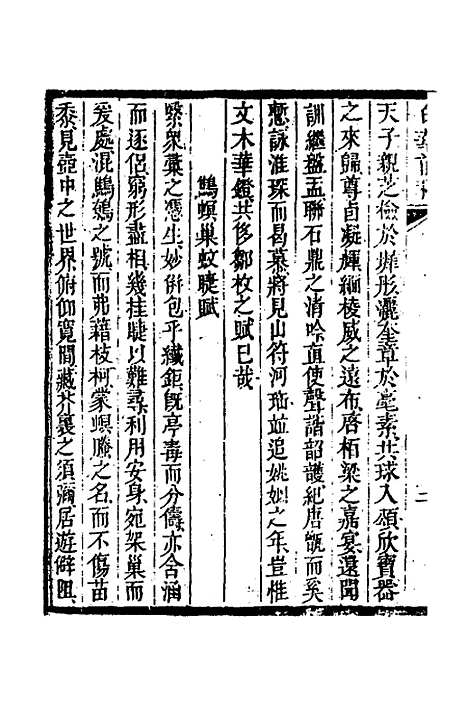 天子親芝檢於
灑奎章於毫素共球入頌欣寶器
之來歸尊卣凝輝緬稜威之遠布啓栢梁之嘉宴還聞
訓繼盤盂聯石鼎之清唫直使聲諧韶頀紀唐甗而奚
慙詠淮琛而曷慕將見山符河瑞並追姚姒之年豈惟
文木華鐙共侈鄒枚之賦已哉
鷦螟巢蚊睫賦
緊衆彙之憑生妙併包乎纖鉅旣亭毒而分儔亦含涵
而逐侶窮形盡相幾挂睫以難尋利用安身宛架巢而
爰處混鷦鷯之號而弗藉枝柯蒙螟𧒒之名而不傷苗
黍見壺中之世界俯仰寬閒藏芥裏之須彌居遊僻阻